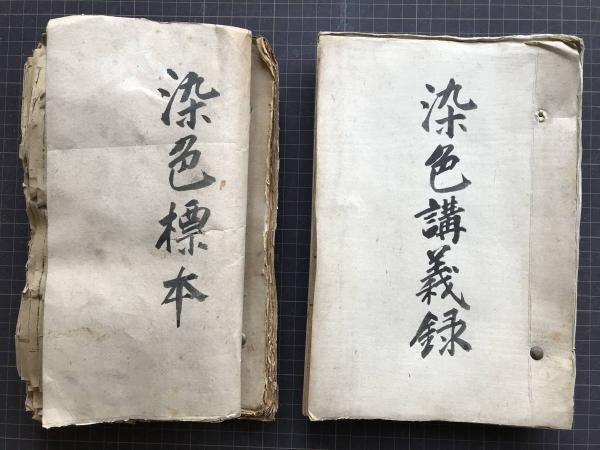 染色標本
染色講義録